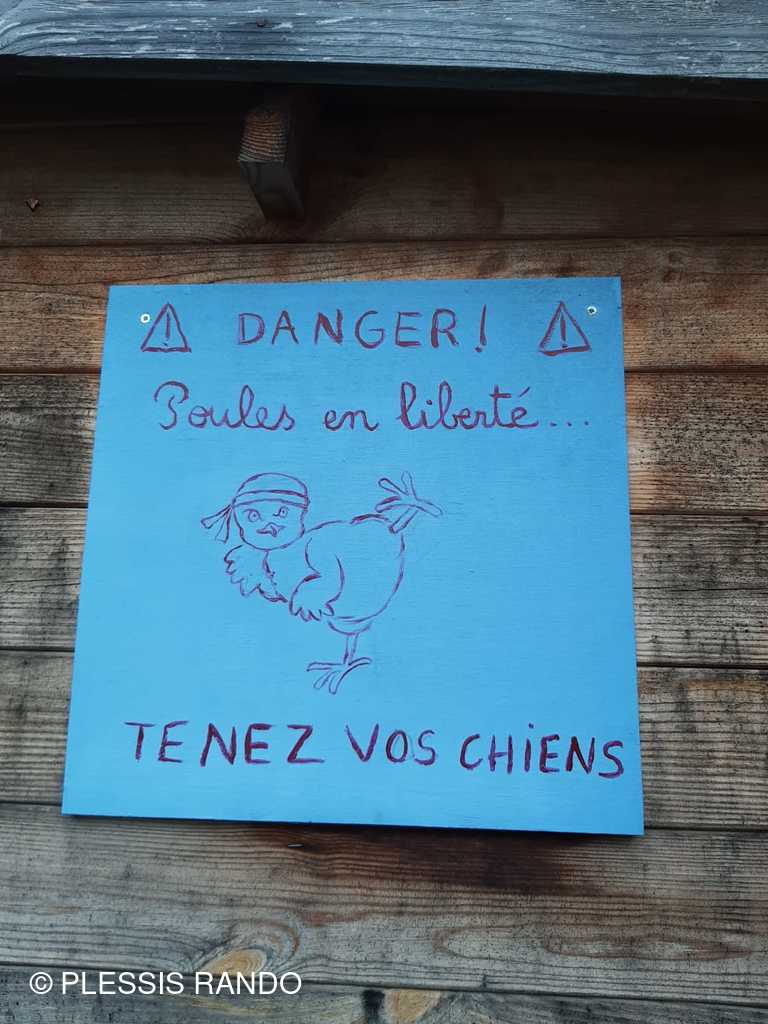 DANGER!
Poules en liberté...
TENEZ VOS CHIENS
© PLESSIS RANDO